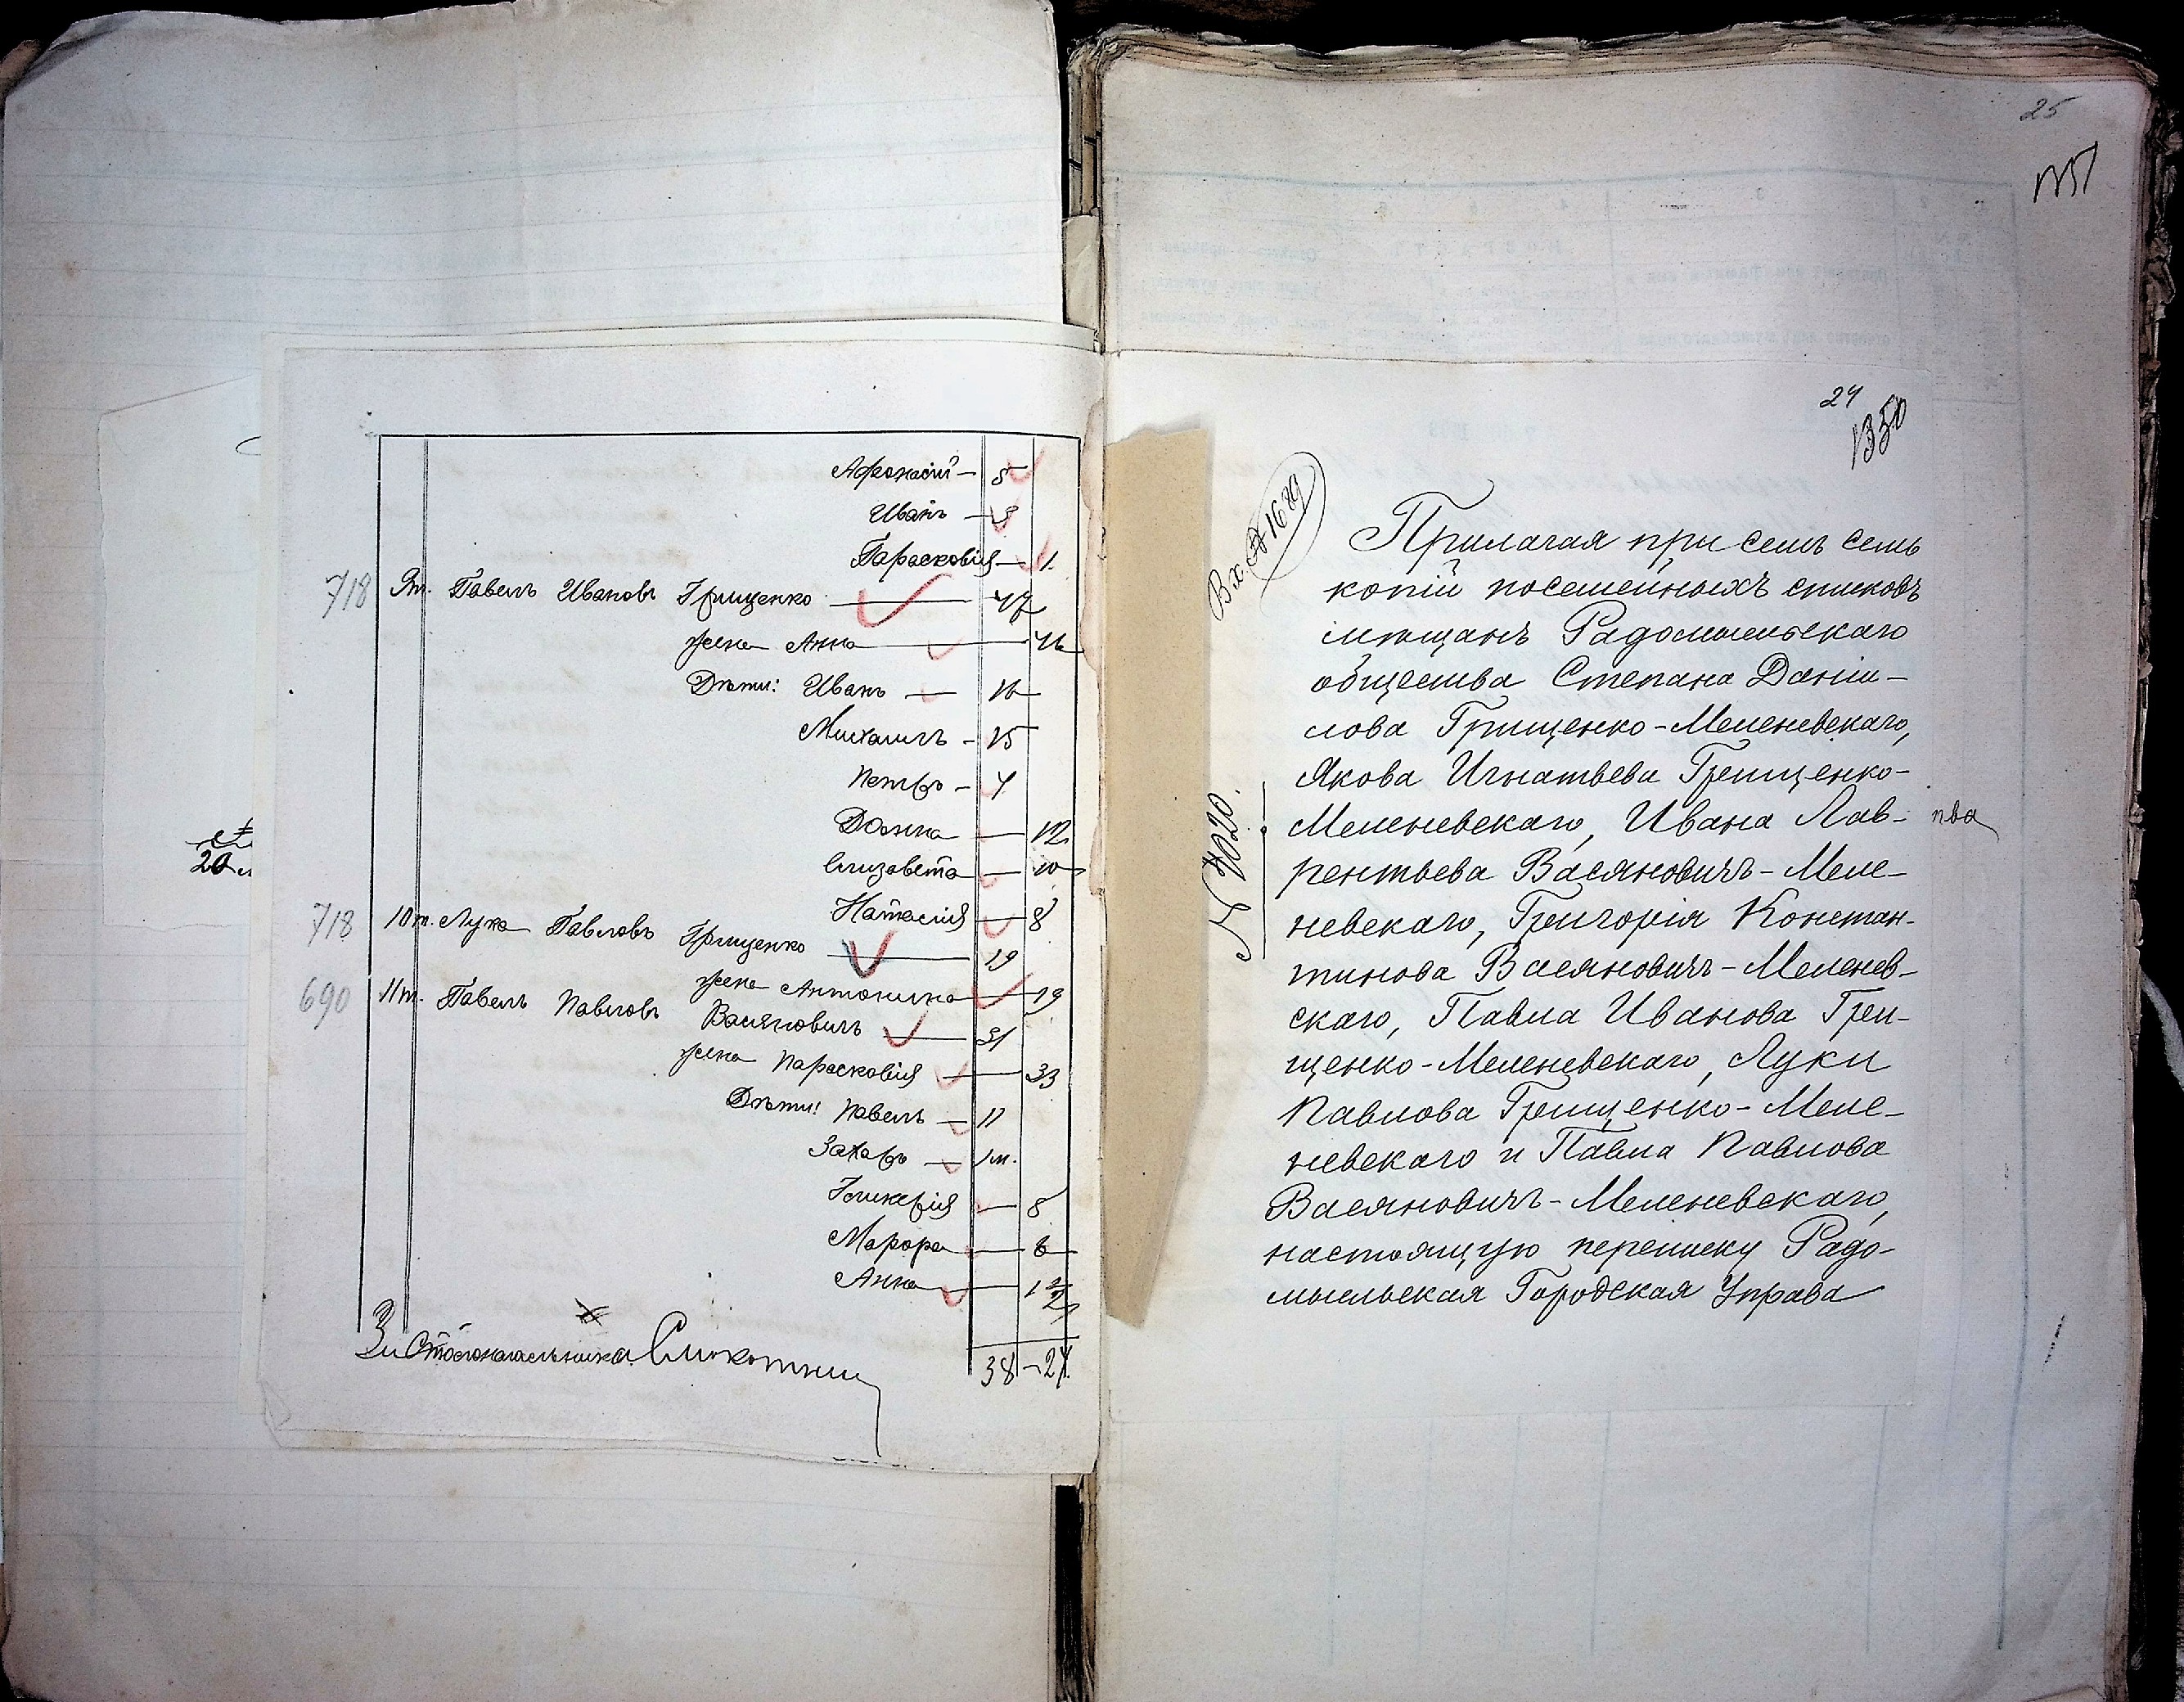 Афанасій — 5
Иванъ — 3
Парасковія — 1.
718 9т. Павелъ Ивановъ Грищенко — 47
жена Анна — 46
Дѣти: Иванъ — 16
Михаилъ — 15
Петръ — 4
Домна — 12
Елизавета — 10
Наталія — 8
718 10т. Лука Павловъ Грищенко — 19
жена Антонина — 19
690 11т. Павелъ Павловъ Васяновичъ — 31
жена Парасковія — 33
Дѣти: Павелъ — 11
Захаръ — 1м.
Гликерія — 8
Марфа — 6
Анна — 1 1/2
38 — 24
За Столоначальника
20
25
24
1350
Вх. № 1689
№ 4020.
Прилагая при семъ семь
копій посемейныхъ списковъ
мѣщанъ Радомысльскаго
общества Степана Дани-
лова Грищенко-Меленевскаго,
Якова Игнатьева Грищенко-
Меленевскаго, Ивана Лав-
рентьева Васяновичъ-Меле-
невскаго, Григорія Констан-
тинова Васяновичъ-Меленев-
скаго, Павла Иванова Гри-
щенко-Меленевскаго, Луки
Павлова Грищенко-Меле-
невскаго и Павла Павлова
Васяновичъ-Меленевскаго,
настоящую переписку Радо-
мысльская Городская Управа